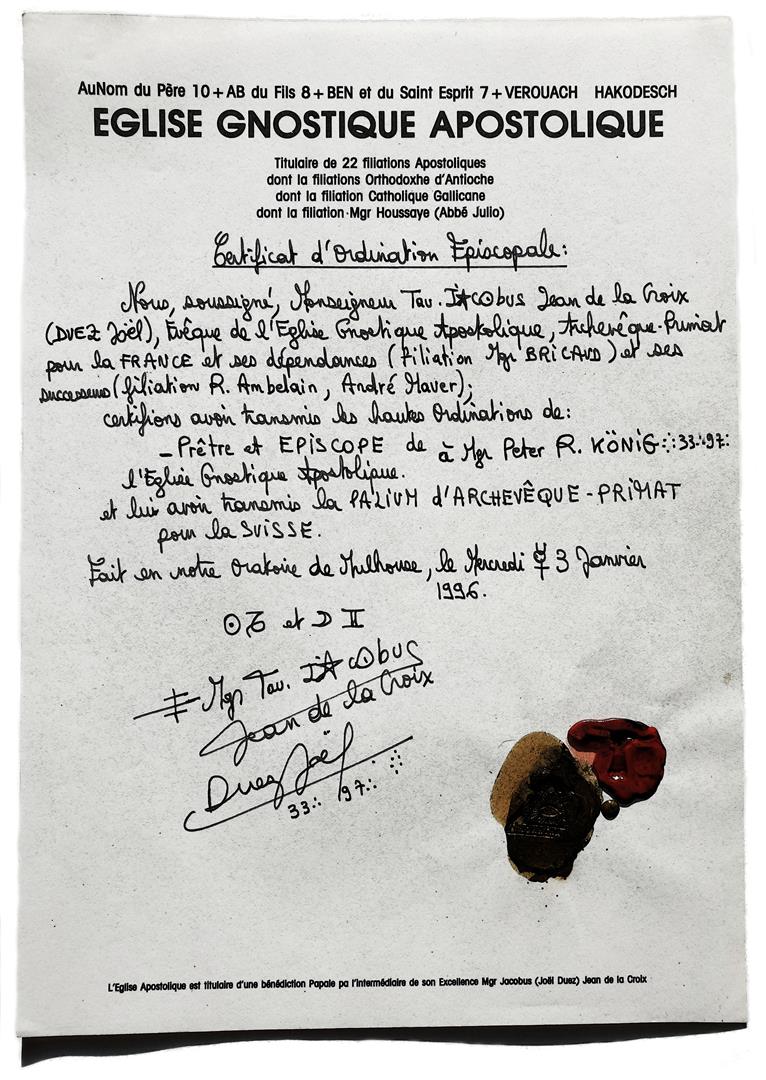 AuNom du Père 10+AB du Fils 8+BEN et du Saint Esprit 7+VEROUACH HAKODESCH
EGLISE GNOSTIQUE APOSTOLIQUE
Titulaire de 22 filiations Apostoliques
dont la filiations Orthodoxhe d'Antioche
dont la filiation Catholique Gallicane
dont la filiation Mgr Houssaye (Abbé Julio)
Certificat d'Ordination Episcopale:
Nous, soussigné, Monseigneur Tav. IACObus Jean de la Croix
(DUEZ Joël), Evêque de l'Eglise Gnostique Apostolique, Archevêque-Primat
pour la FRANCE et ses dépendances (filiation Mgr BRICAUD) et ses
successeurs (filiation R. Ambelain, André Mauer);
certifions avoir transmis les hautes Ordinations de:
- Prêtre et EPISCOPE de à Mgr Peter R. KÖNIG 33∴ 97∴
l'Eglise Gnostique Apostolique.
et lui avoir transmis la PALIUM d'ARCHEVÊQUE-PRIMAT
pour la SUISSE.
Fait en notre Oratoire de Mulhouse, le Mercredi ☿ 3 Janvier
1996.
☉ ♑ et ☽ ♊
Mgr Tav. IACObus
Jean de la Croix
Duez Joël
33∴ 97∴
L'Eglise Apostolique est titulaire d'une bénédiction Papale pa l'intermédiaire de son Excellence Mgr Jacobus (Joël Duez) Jean de la Croix